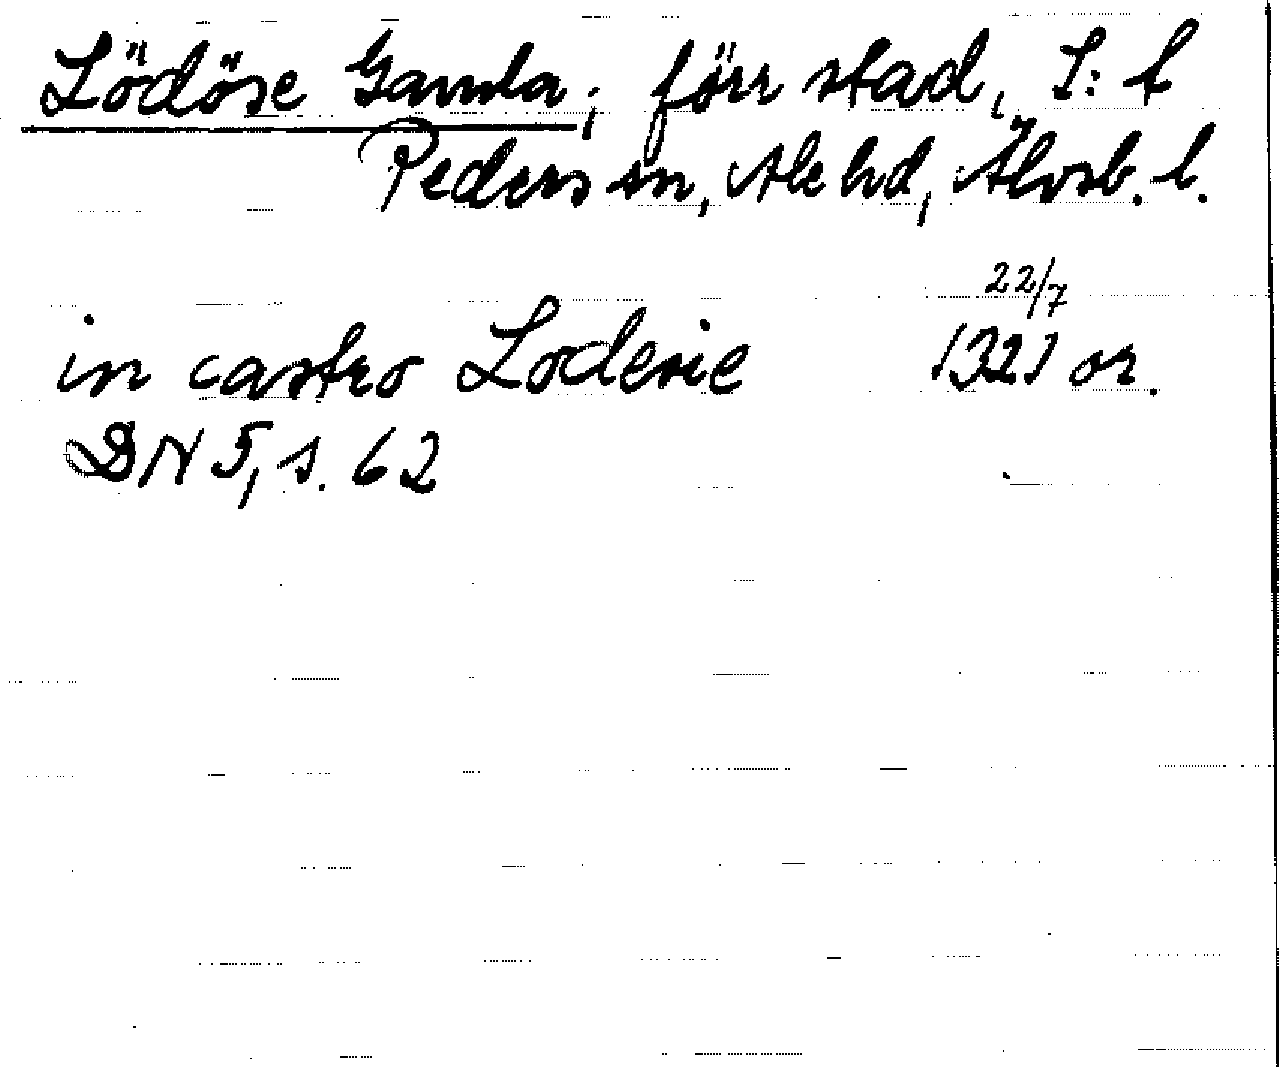 Lödöse Gamla; förr stad, S:t
Peders sn, Ale hd, Älvsb. l.
22/7
in castro Lodesie 1321 or.
DN 5, s. 62